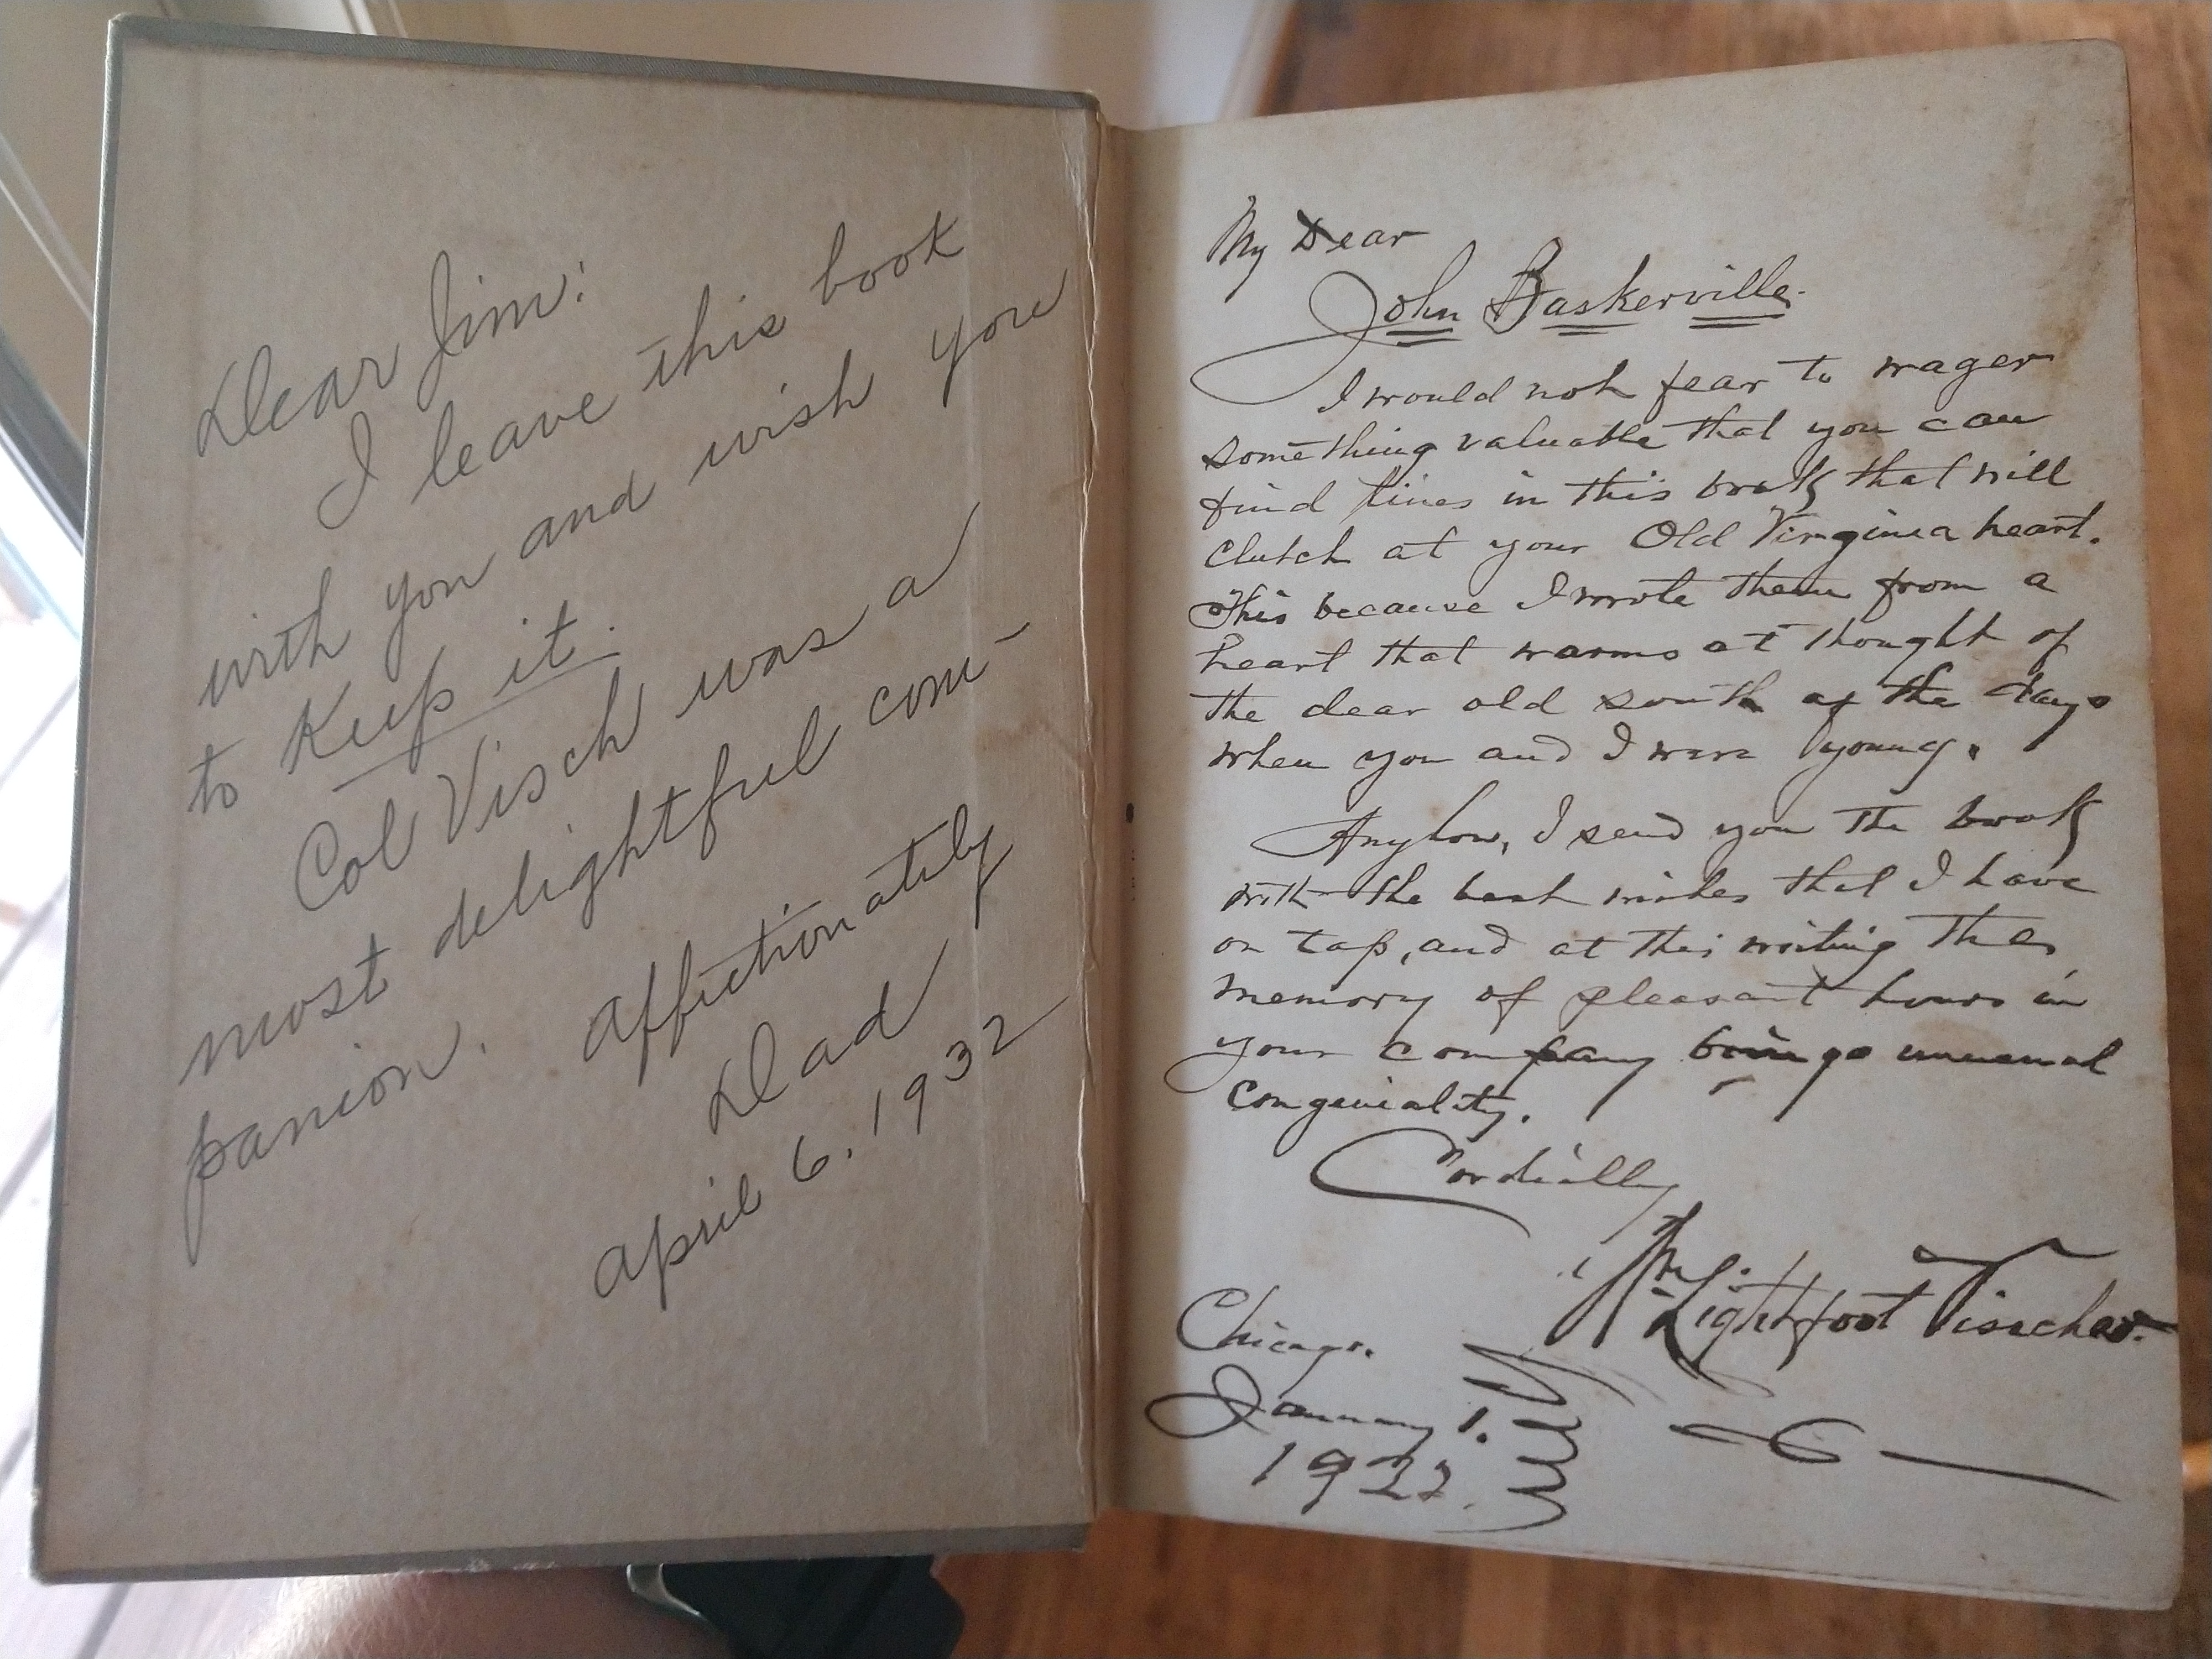 Dear Jim:
I leave this book
with you and wish you
to Keep it.
Col Visch was a
most delightful com-
panion.
Affectionately
Dad
April 6. 1932
My Dear
John Baskerville.
I would not fear to wager
something valuable that you can
find lines in this book that will
clutch at your Old Virginia heart.
This because I wrote them from a
heart that warms at thought of
the dear old south of the days
when you and I were young.
Anyhow, I send you the book
with the best wishes that I have
on tap, and at this writing the
memory of pleasant hours in
your company brings unusual
congeniality.
Cordially
Wm. Lightfoot Visscher.
Chicago.
January 1.
1922.